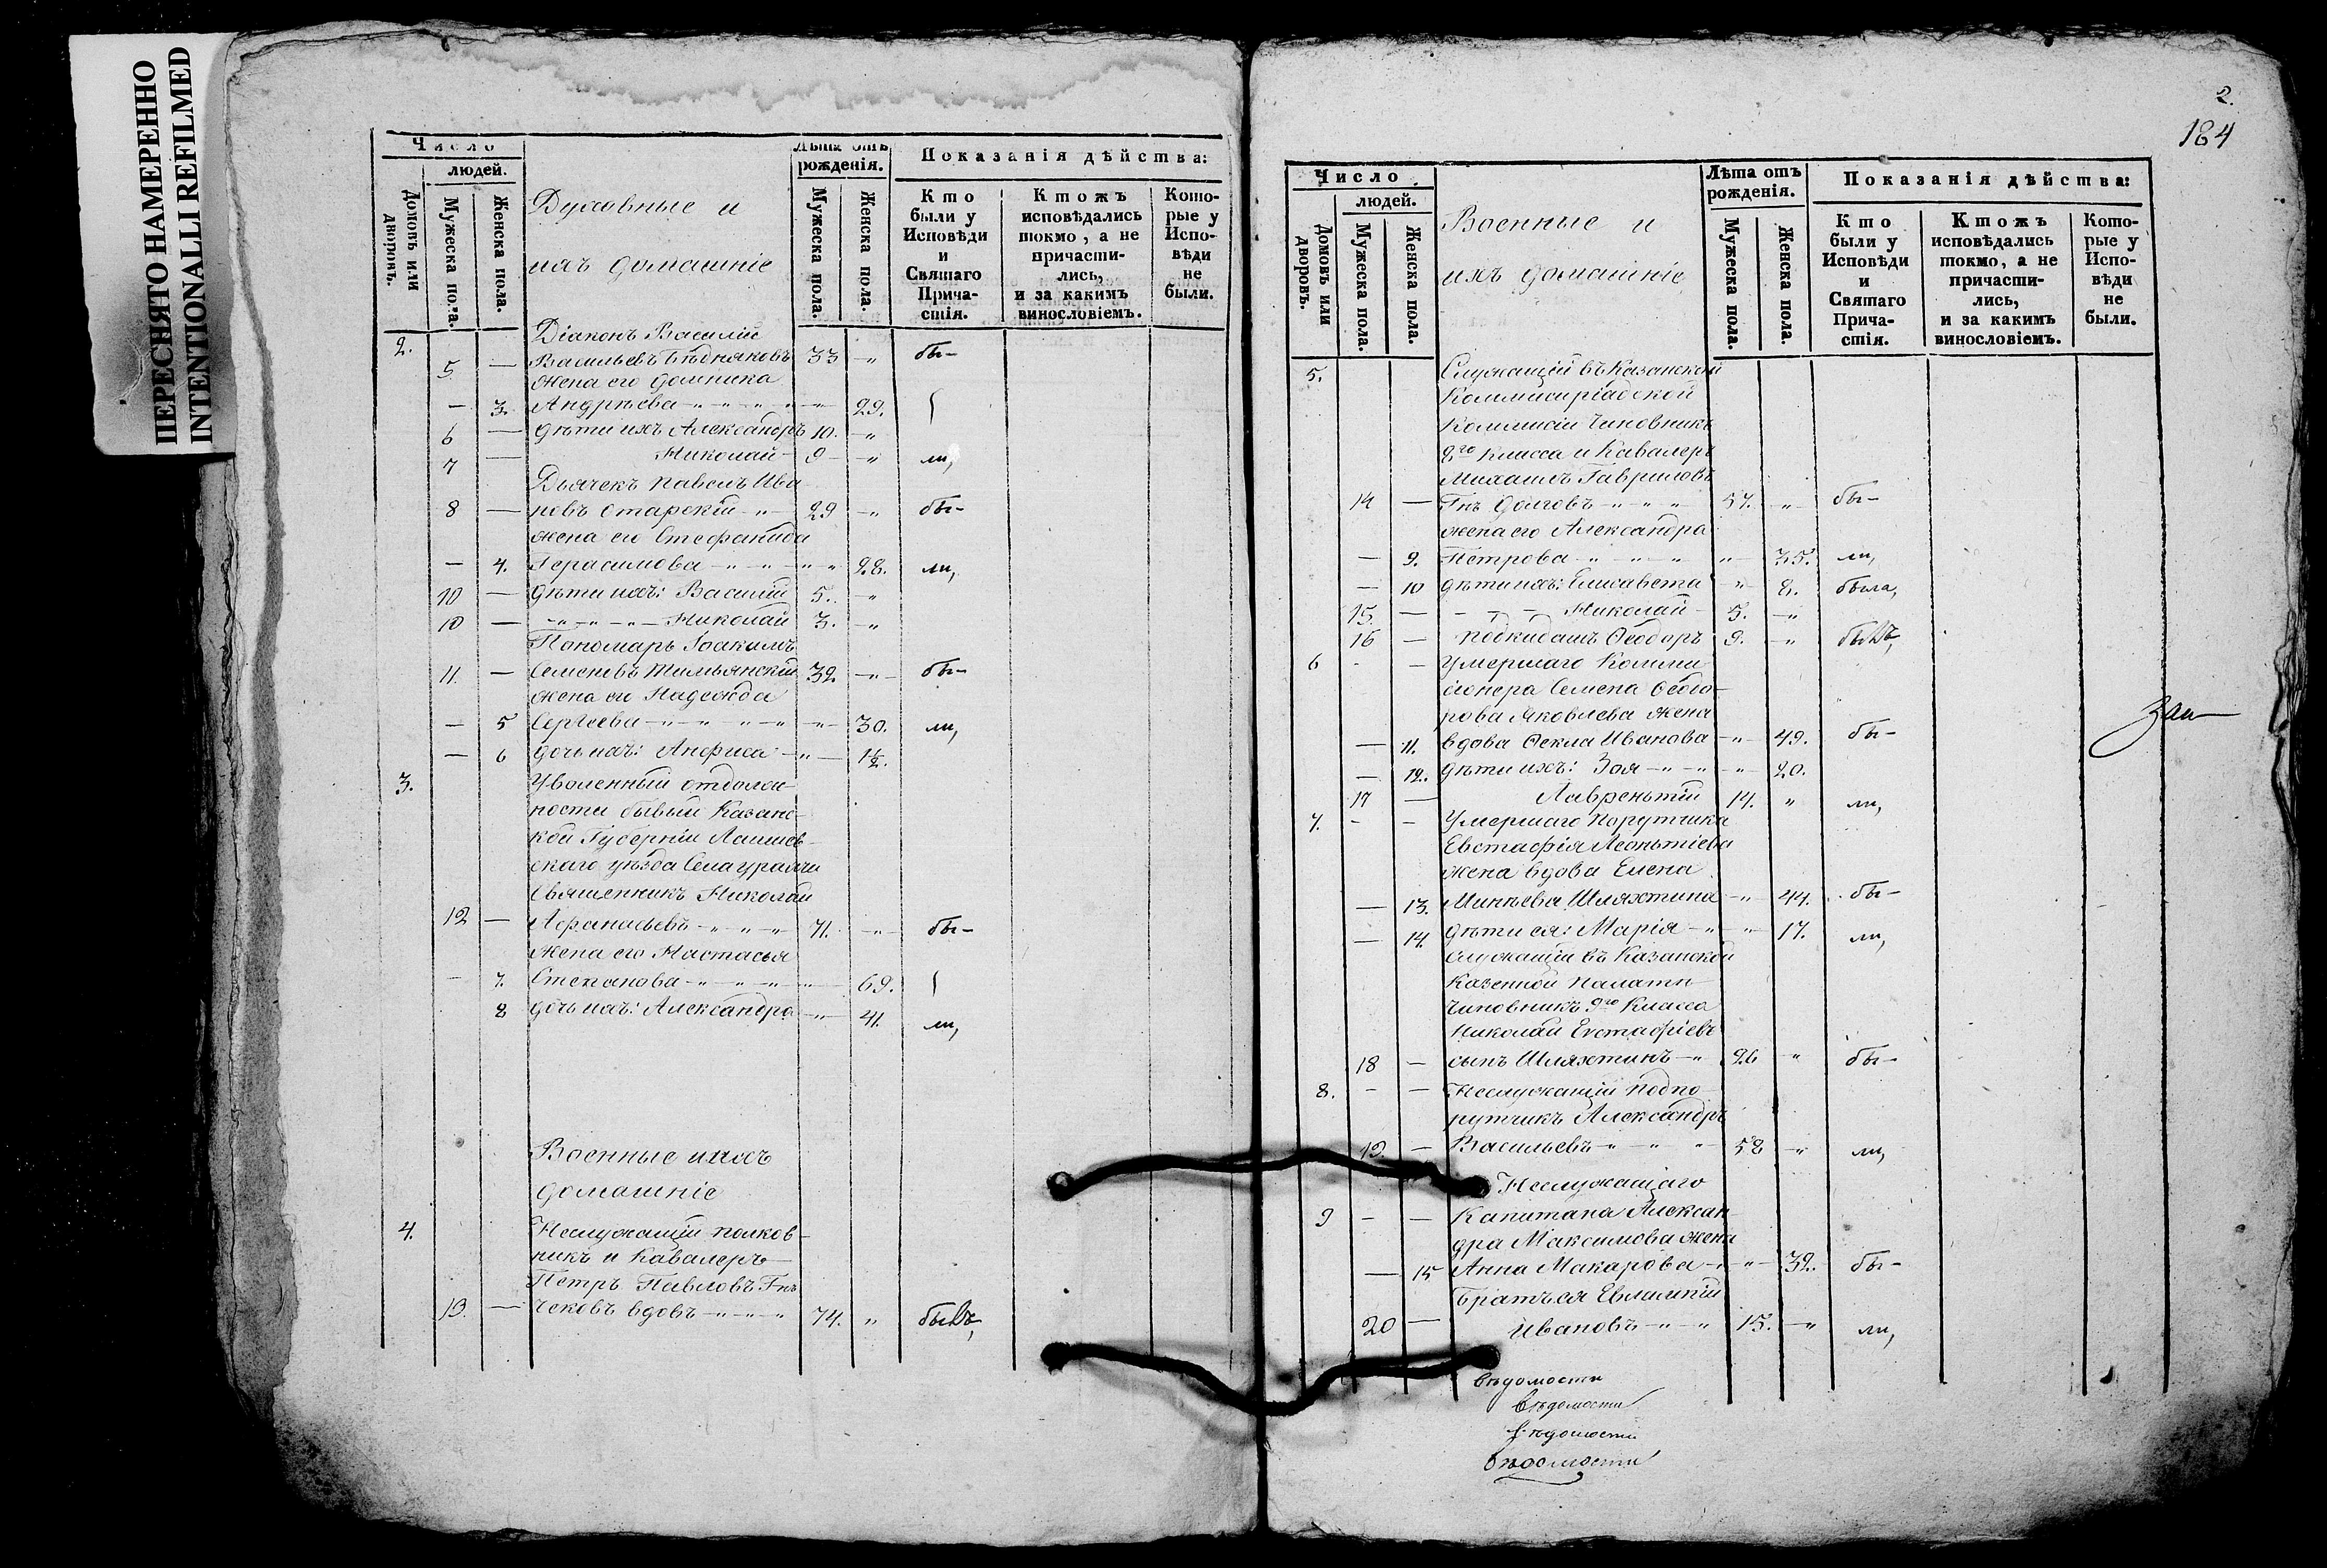 ПЕРЕСНЯТО НАМЕРЕННО
INTENTIONALLI REFILMED
Число
людей.
Домовъ или дворовъ.
Мужеска пола.
Женска пола.
Духовные и
ихъ домашніе
Лѣта отъ рожденія.
Мужеска пола.
Женска пола.
Показанія дѣйства:
Кто были у Исповѣди и Святаго Причастія.
Ктожъ исповѣдались токмо, а не причастились, и за какимъ винословіемъ.
Которые у Исповѣди не были.
2. Діаконъ Василій
5 — Васильевъ Бѣдняковъ 33 „ бы-
жена его Домника
— 3. Андрѣева 29.
6 — дѣти ихъ Александръ 10. „
7 — Николай 9 „ ли,
Дьячекъ Павелъ Ива
8 — новъ Старскій 29 „ бы-
жена его Стефанида
— 4. Герасимова 28. ли,
10 — дѣти ихъ: Василій 5. „
10 — Николай 3. „
Пономарь Іоакимъ
11. — Семеновъ Тимьянскій 32 „ бы-
жена его Надежда
— 5 Сергѣева 30. ли,
— 6 дочь ихъ: Анфиса 1½.
3. Уволенный отдолж
ности бывый Казанс-
кой Губерніи Лаишев-
скаго уѣзда Села
Священникъ Николай
12 — Афанасьевъ 71. „ бы-
жена его Настасья
— 7. Степанова 69.
8 дочь ихъ: Александра 41. ли,
Военные и ихъ
домашніе
4. Неслужащій полков-
никъ и Кавалеръ
Петръ Павловъ Гнъ
13. — Чековъ вдовъ 74. „ былъ,
2.
184
Число
людей.
Домовъ или дворовъ.
Мужеска пола.
Женска пола.
Военные и
ихъ домашніе
Лѣта отъ рожденія.
Мужеска пола.
Женска пола
Показанія дѣйства:
Кто были у Исповѣди и Святаго Причастія.
Ктожъ исповѣдались токмо, а не причастились, и за какимъ винословіемъ.
Которые у Исповѣди не были.
5. Служащій въ Казанской
Коммисиріадской
Коммисіи Чиновникъ
8го Класса и Кавалеръ
Михаилъ Гавриловъ
14 — Гнъ Долговъ 57. „ бы-
жена его Александра
— 9. Петрова „ 35. ли,
— 10 дѣти ихъ: Елисавета „ 8. была,
15 — Николай 5. „
16 — подкидышъ Ѳеодоръ 9. „ былъ,
6 - — Умершаго Комми
сіонера Семена Ѳедо-
рова Яковлева жена
— 11. вдова Ѳекла Иванова „ 49. бы-
— 12. дѣти ихъ: Зоя „ 20.
17 — Лаврентій 14. „ ли,
7. - - Умершаго Порутчика
Евстафія Леонтіева
жена вдова Елена
— 13. Минѣева Шляхтина „ 44. бы-
— 14. дѣти ея: Марія „ 17. ли,
служащій въ Казанской
Казенной Палатѣ
Чиновникъ 9го Класса
Николай Евстафіевъ
18 — сынъ Шляхтинъ 26 „ бы-
8. - — Неслужащій подпо
рутчикъ Александръ
19 — Васильевъ 58 „ ли,
Неслужащаго
9 - — Капитана Алексан
дра Максимова жена
— 15 Анна Макарова „ 32. бы-
Братъ ея Евлампій
20 — Ивановъ 15. „ ли,
вѣдомости
вѣдомости
вѣдомости
вѣдомости